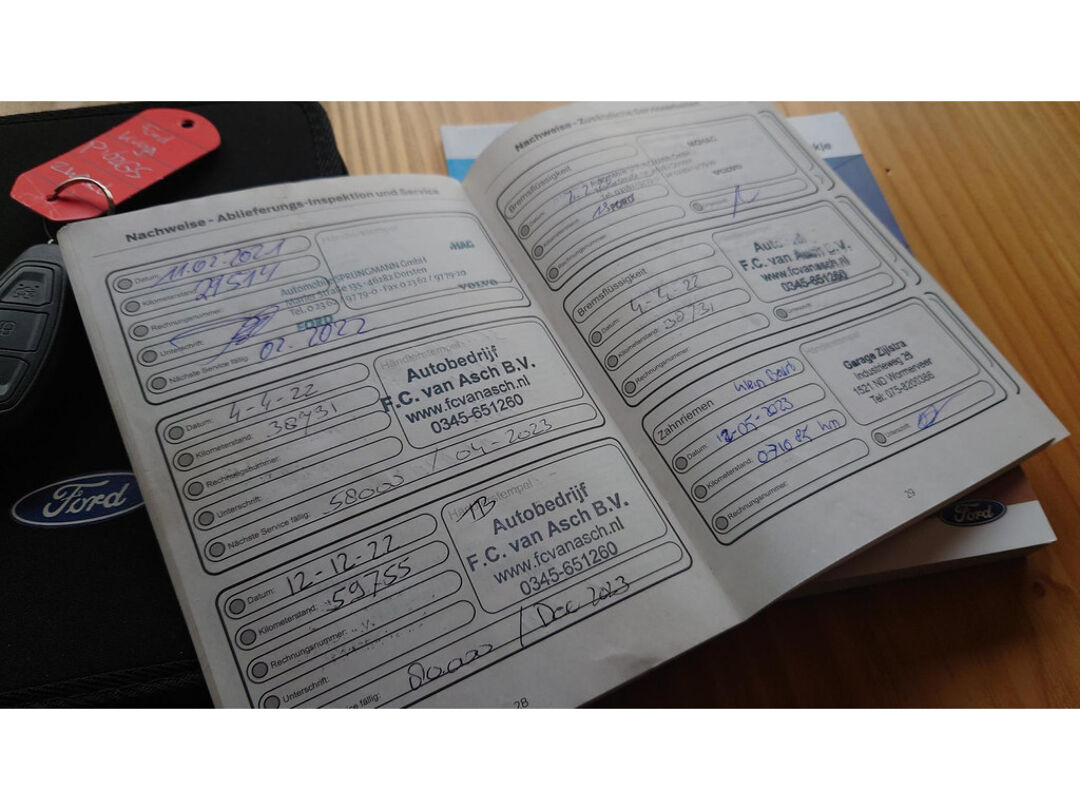 Ford
Nachweise - Ablieferungs-Inspektion und Service
Datum: 11.02.2021
Kilometerstand: 29514
Rechnungsnummer:
Unterschrift:
Nächste Service fällig: 02.2022
Automobile SPRUNGMANN GmbH
Marler Straße 135 · 46282 Dorsten
Tel. 0 23 62 / 9779-0 · Fax 0 23 62 / 9779-20
FORD
VOLVO
Datum: 4-4-22
Kilometerstand: 38731
Rechnungsnummer:
Unterschrift:
Nächste Service fällig: 58000 / 04-2023
Händlerstempel
Autobedrijf
F.C. van Asch B.V.
www.fcvanasch.nl
0345-651260
Datum: 12-12-22
Kilometerstand: 59755
Rechnungsnummer:
Unterschrift:
Service fällig: 80.000 / Dec 2023
Händlerstempel
Autobedrijf
F.C. van Asch B.V.
www.fcvanasch.nl
0345-651260
28
Nachweise - Zusätzliche Servicearbeiten
Bremsflüssigkeit
Datum:
Kilometerstand:
Rechnungsnummer:
FORD
VOLVO
Unterschrift:
Bremsflüssigkeit
Datum: 4-4-22
Kilometerstand: 38731
Rechnungsnummer:
F.C. van Asch B.V.
www.fcvanasch.nl
0345-651260
Unterschrift:
Zahnriemen
Datum: 12-05-2023
Kilometerstand: 071085 km
Rechnungsnummer:
Garage Zijlstra
Industrieweg 29
1521 ND Wormerveer
Tel: 075-6288386
Unterschrift:
29
Ford